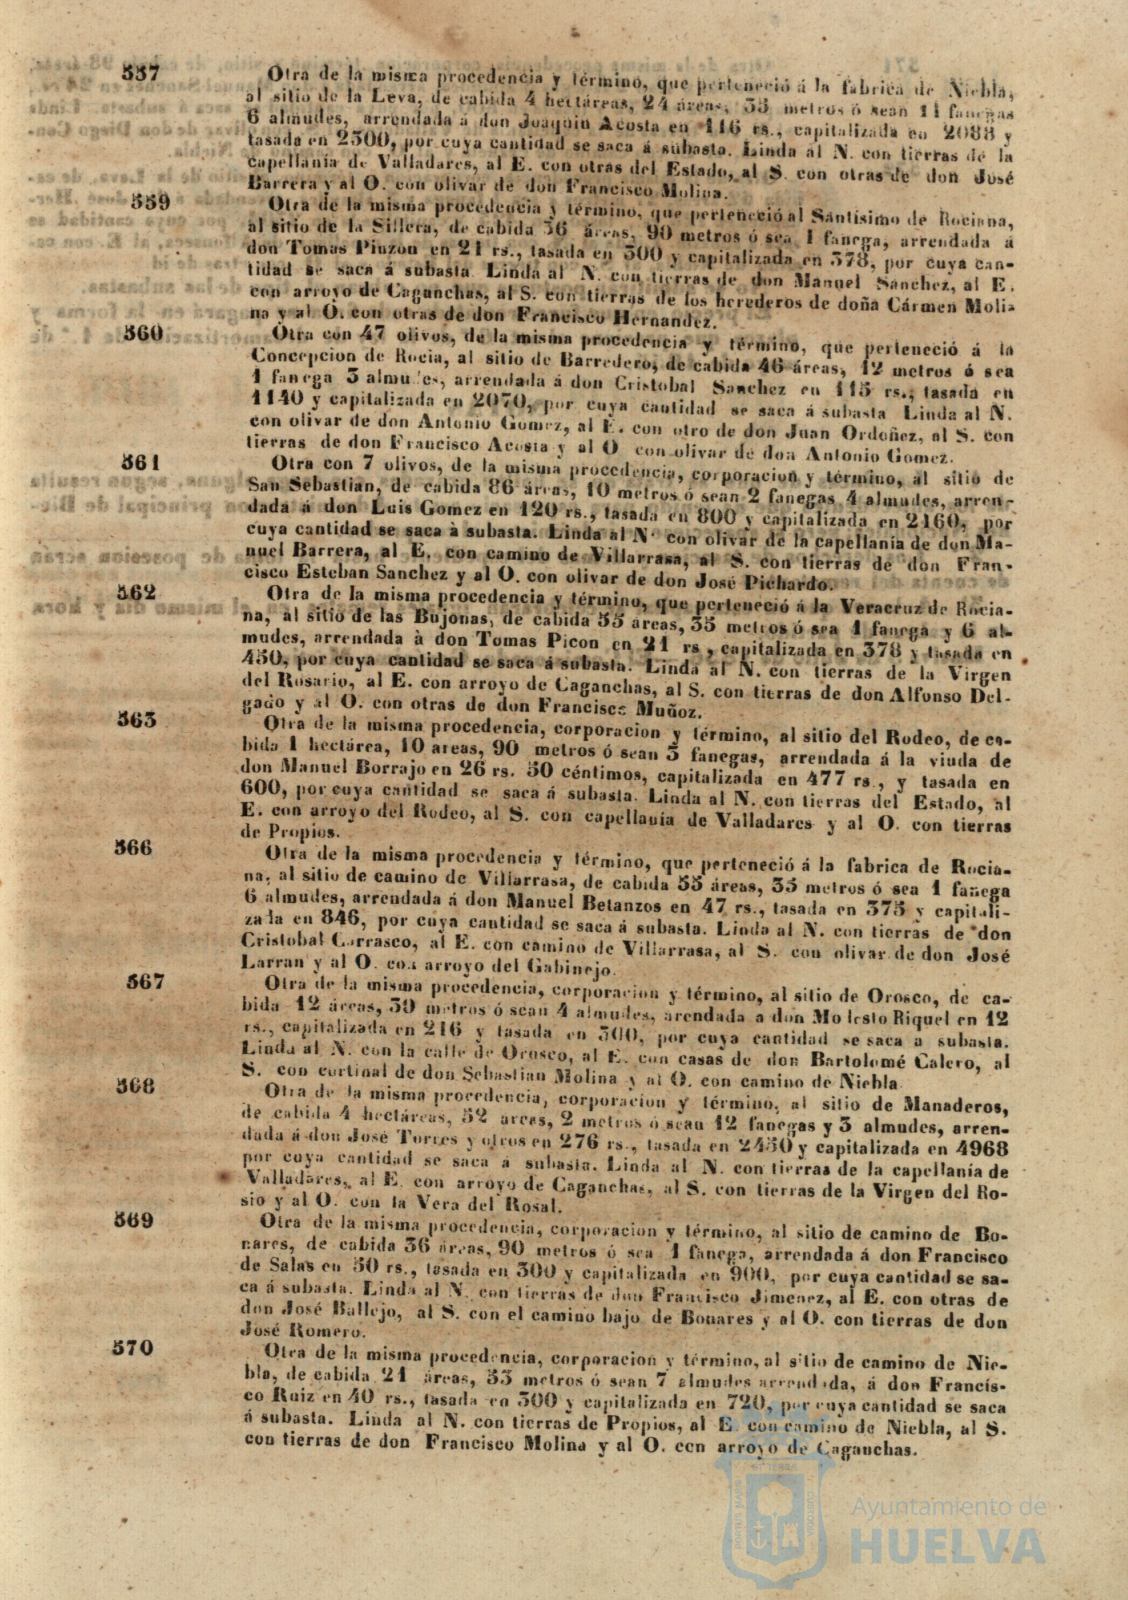 557 Otra de la misma procedencia y término, que perteneció á la fabrica de Niebla,
al sitio de la Leva, de cabida 4 hectáreas, 24 áreas, 35 metros ó sean 11 fanegas
6 almudes, arrendada á don Joaquin Acosta en 116 rs., capitalizada en 2088 y
tasada en 2500, por cuya cantidad se saca á subasta. Linda al N. con tierras de la
Capellanía de Valladares, al E. con otras del Estado, al S. con otras de don José
Barrera y al O. con olivar de don Francisco Molina.
559 Otra de la misma procedencia y término, que perteneció al Santísimo de Rociana,
al sitio de la Sillera, de cabida 36 áreas, 90 metros ó sea 1 fanega, arrendada á
don Tomas Pinzon en 21 rs., tasada en 300 y capitalizada en 378, por cuya can-
tidad se saca á subasta. Linda al N. con tierras de don Manuel Sanchez, al E.
con arroyo de Caganchas, al S. con tierras de los herederos de doña Cármen Moli-
na y al O. con otras de don Francisco Hernandez.
560 Otra con 47 olivos, de la misma procedencia y término, que perteneció á la
Concepcion de Rocia, al sitio de Barredero, de cabida 46 áreas, 12 metros ó sea
1 fanega 3 almudes, arrendada á don Cristobal Sanchez en 115 rs., tasada en
1140 y capitalizada en 2070, por cuya cantidad se saca á subasta Linda al N.
con olivar de don Antonio Gomez, al E. con otro de don Juan Ordoñez, al S. con
tierras de don Francisco Acosta y al O con olivar de don Antonio Gomez.
561 Otra con 7 olivos, de la misma procedencia, corporacion y término, al sitio de
San Sebastian, de cabida 86 áreas, 10 metros ó sean 2 fanegas 4 almudes, arren-
dada á don Luis Gomez en 120 rs., tasada en 800 y capitalizada en 2160, por
cuya cantidad se saca à subasta. Linda al N. con olivar de la capellanía de don Ma-
nuel Barrera, al E. con camino de Villarrasa, al S. con tierras de don Fran-
cisco Esteban Sanchez y al O. con olivar de don José Pichardo.
562 Otra de la misma procedencia y término, que perteneció á la Veracruz de Rocia-
na, al sitio de las Bujonas, de cabida 55 áreas, 35 metros ó sea 1 fanega y 6 al-
mudes, arrendada à don Tomas Picon en 21 rs, capitalizada en 378 y tasada en
450, por cuya cantidad se saca á subasta. Linda al N. con tierras de la Virgen
del Rosario, al E. con arroyo de Caganchas, al S. con tierras de don Alfonso Del-
gado y al O. con otras de don Francisco Muñoz.
563 Otra de la misma procedencia, corporacion y término, al sitio del Rodeo, de ca-
bida 1 hectárea, 10 areas, 90 metros ó sean 3 fanegas, arrendada á la viuda de
don Manuel Borrajo en 26 rs. 50 céntimos, capitalizada en 477 rs., y tasada en
600, por cuya cantidad se saca á subasta. Linda al N. con tierras del Estado, al
E. con arroyo del Rodeo, al S. con capellanía de Valladares y al O. con tierras
de Propios.
566 Otra de la misma procedencia y término, que perteneció á la fabrica de Rocia-
na, al sitio de camino de Villarrasa, de cabida 55 áreas, 35 metros ó sea 1 fanega
6 almudes, arrendada á don Manuel Betanzos en 47 rs., tasada en 375 y capitali-
zada en 846, por cuya cantidad se saca á subasta. Linda al N. con tierras de don
Cristobal Carrasco, al E. con camino de Villarrasa, al S. con olivar de don José
Larran y al O. con arroyo del Gabinejo.
567 Otra de la misma procedencia, corporacion y término, al sitio de Orosco, de ca-
bida 12 áreas, 30 metros ó sean 4 almudes, arendada a don Modesto Riquel en 12
rs., capitalizada en 216 y tasada en 300, por cuya cantidad se saca a subasta.
Linda al N. con la calle de Orosco, al E. con casas de don Bartolomé Calero, al
S. con cortinal de don Sebastian Molina y al O. con camino de Niebla
568 Otra de la misma procedencia, corporacion y término, al sitio de Manaderos,
de cabida 4 hectáreas, 52 areas, 2 metros ó sean 12 fanegas y 3 almudes, arren-
dada á don José Torres y otros en 276 rs., tasada en 2450 y capitalizada en 4968
por cuya cantidad se saca á subasta. Linda al N. con tierras de la capellanía de
Valladares, al E. con arroyo de Caganchas, al S. con tierras de la Virgen del Ro-
sio y al O. con la Vera del Rosal.
569 Otra de la misma procedencia, corporacion y término, al sitio de camino de Bo-
nares, de cabida 36 áreas, 90 metros ó sea 1 fanega, arrendada á don Francisco
de Salas en 50 rs., tasada en 300 y capitalizada en 900, por cuya cantidad se sa-
ca á subasta. Linda al N. con tierras de don Francisco Jimenez, al E. con otras de
don José Ballejo, al S. con el camino bajo de Bonares y al O. con tierras de don
José Romero.
570 Otra de la misma procedencia, corporacion y término, al sitio de camino de Nie-
bla, de cabida 21 áreas, 53 metros ó sean 7 almudes arrendada, á don Francis-
co Ruiz en 40 rs., tasada en 300 y capitalizada en 720, por cuya cantidad se saca
á subasta. Linda al N. con tierras de Propios, al E. con camino de Niebla, al S.
con tierras de don Francisco Molina y al O. con arroyo de Caganchas.
Ayuntamiento de
HUELVA